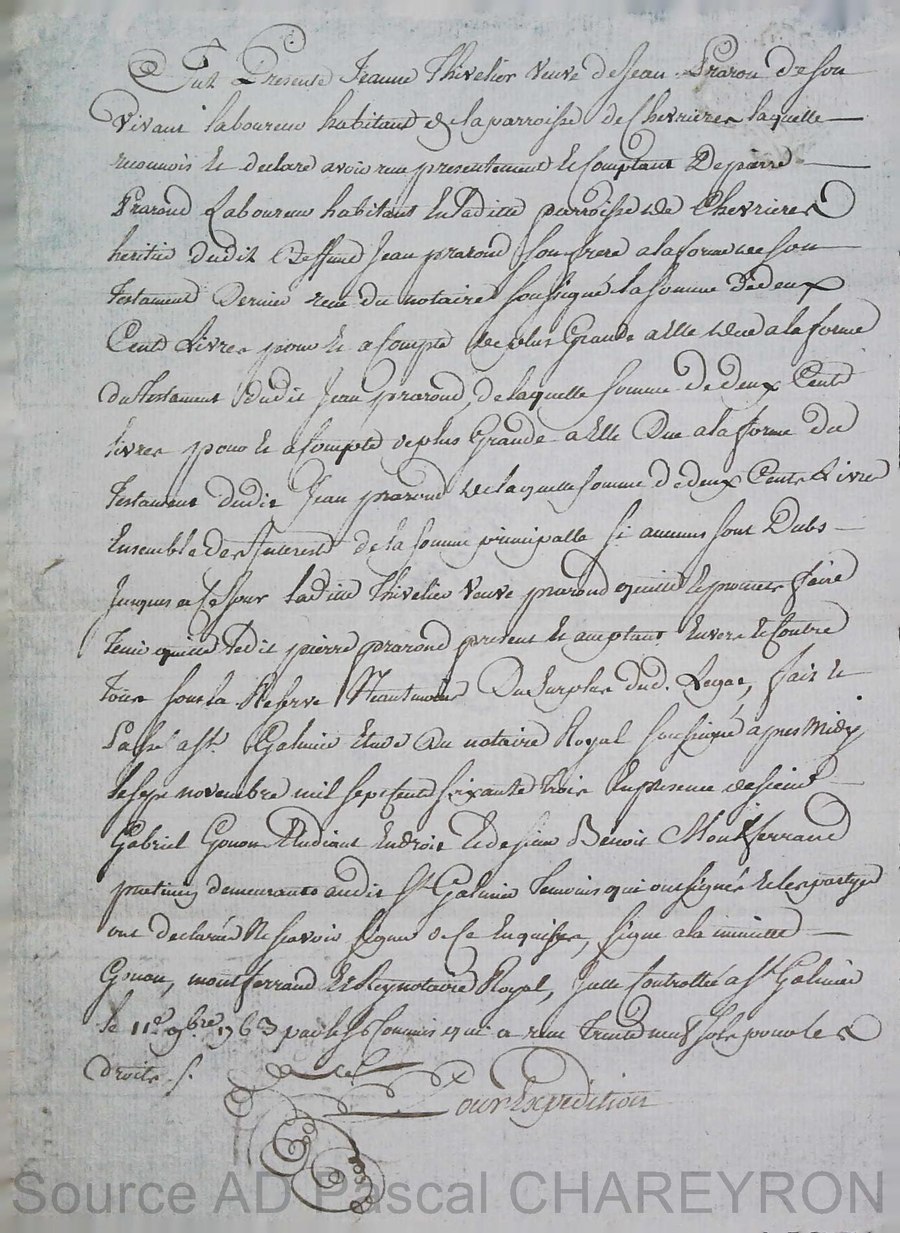 Fut Presente Jeanne Thivelier veuve de Jean Praron de son
Vivant laboureur habitant de la parroisse de Chevrieres laquelle
reconnois et declare avoir reçu presentement et Comptant De pierre
Prarond Laboureur habitant En ladite parroisse de Chevrieres
heritier dudit deffunt Jean prarond son frere a la forme de son
testament Dernier reçu du notaire soussigné la somme de deux
Cents Livres pour et a Compte de plus Grande a Elle due a la forme
du testament dudit Jean prarond, de laquelle somme de deux Cents
livres pour et a Compte de plus Grande a Elle Due a la forme du
testament dudit Jean prarond de laquelle somme de deux Cents Livres
Ensemble des Interest de la somme principalle si aucuns sont Dubs
Jusques a Ce Jour ladite Thivelier Veuve prarond quitte et promet faire
tenir quitte ledit pierre prarond present et acceptant Envers et Contre
tous sous la Reserve Neantmoins Du Surplus dud. Legat, fait et
Passé a St. Galmier Etude du notaire Royal soussigné apres Midy
le sept novembre mil sept Cent soixante trois En presence de sieur
Gabriel Gonon Etudiant En droit et de sieur Benoit Montferrand
praticien demeurants audit St. Galmier temoins qui ont signés et les partyes
ont declarée Ne savoir signer de Ce Enquises, signé a la minutte
Gonon, montferrand et Rey notaire Royal, Icelle Controllée a St. Galmier
le 11e. 9bre. 1763 par le Commis qui a reçu trente neuf sols pour les
droits.
Pour Expedition
Source AD Pascal CHAREYRON